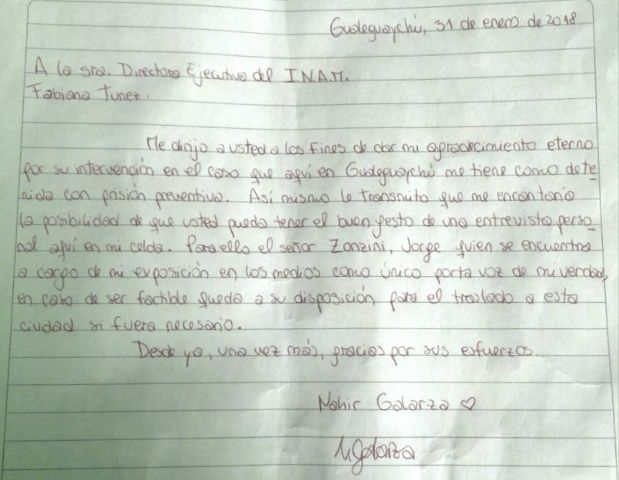 Gualeguaychú, 31 de enero de 2018
A la sra. Directora Ejecutiva del I.N.A.M.
Fabiana Tunez.
Me dirijo a usted a los fines de dar mi agradecimiento eterno
por su intervención en el caso que aquí en Gualeguaychú me tiene como dete-
nida con prisión preventiva. Así mismo le transmito que me encantaría
la posibilidad de que usted pueda tener el buen gesto de una entrevista perso-
nal aquí en mi celda. Para ello el señor Zonzini, Jorge quien se encuentra
a cargo de mi exposición en los medios como único porta voz de mi verdad,
en caso de ser factible queda a su disposición para el traslado a esta
ciudad si fuera necesario.
Desde ya, una vez más, gracias por sus esfuerzos.
Nahir Galarza ♡
NGalarza